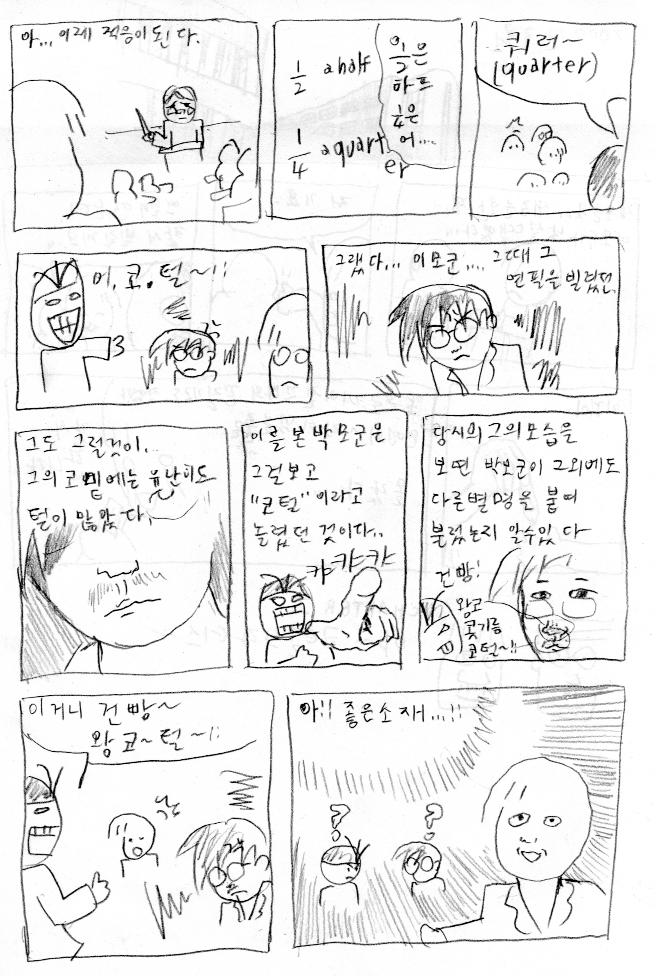 아... 이제 적응이 된다.
1/2 a half
1/2은
하프
1/4 a quart
er
1/4은
어...
쿼러~
(quarter)
어, 코, 털~!!
그랬다... 이모군.... 그때 그
연필을 빌렸던
그도 그럴것이..
그의 코밑에는 유난히도
털이 많았다.
이를 본 박모군은
그걸보고
"코털"이라고
놀렸던 것이다..
캬캬캬
당시의 그의 모습을
보면 박모군이 그외에도
다른별명을 붙여
불렀는지 알수있다
건빵!
왕코
콧기름
코털~!!
이거니 건빵~
왕코~털~!!
아!! 좋은소재...!!
?
?